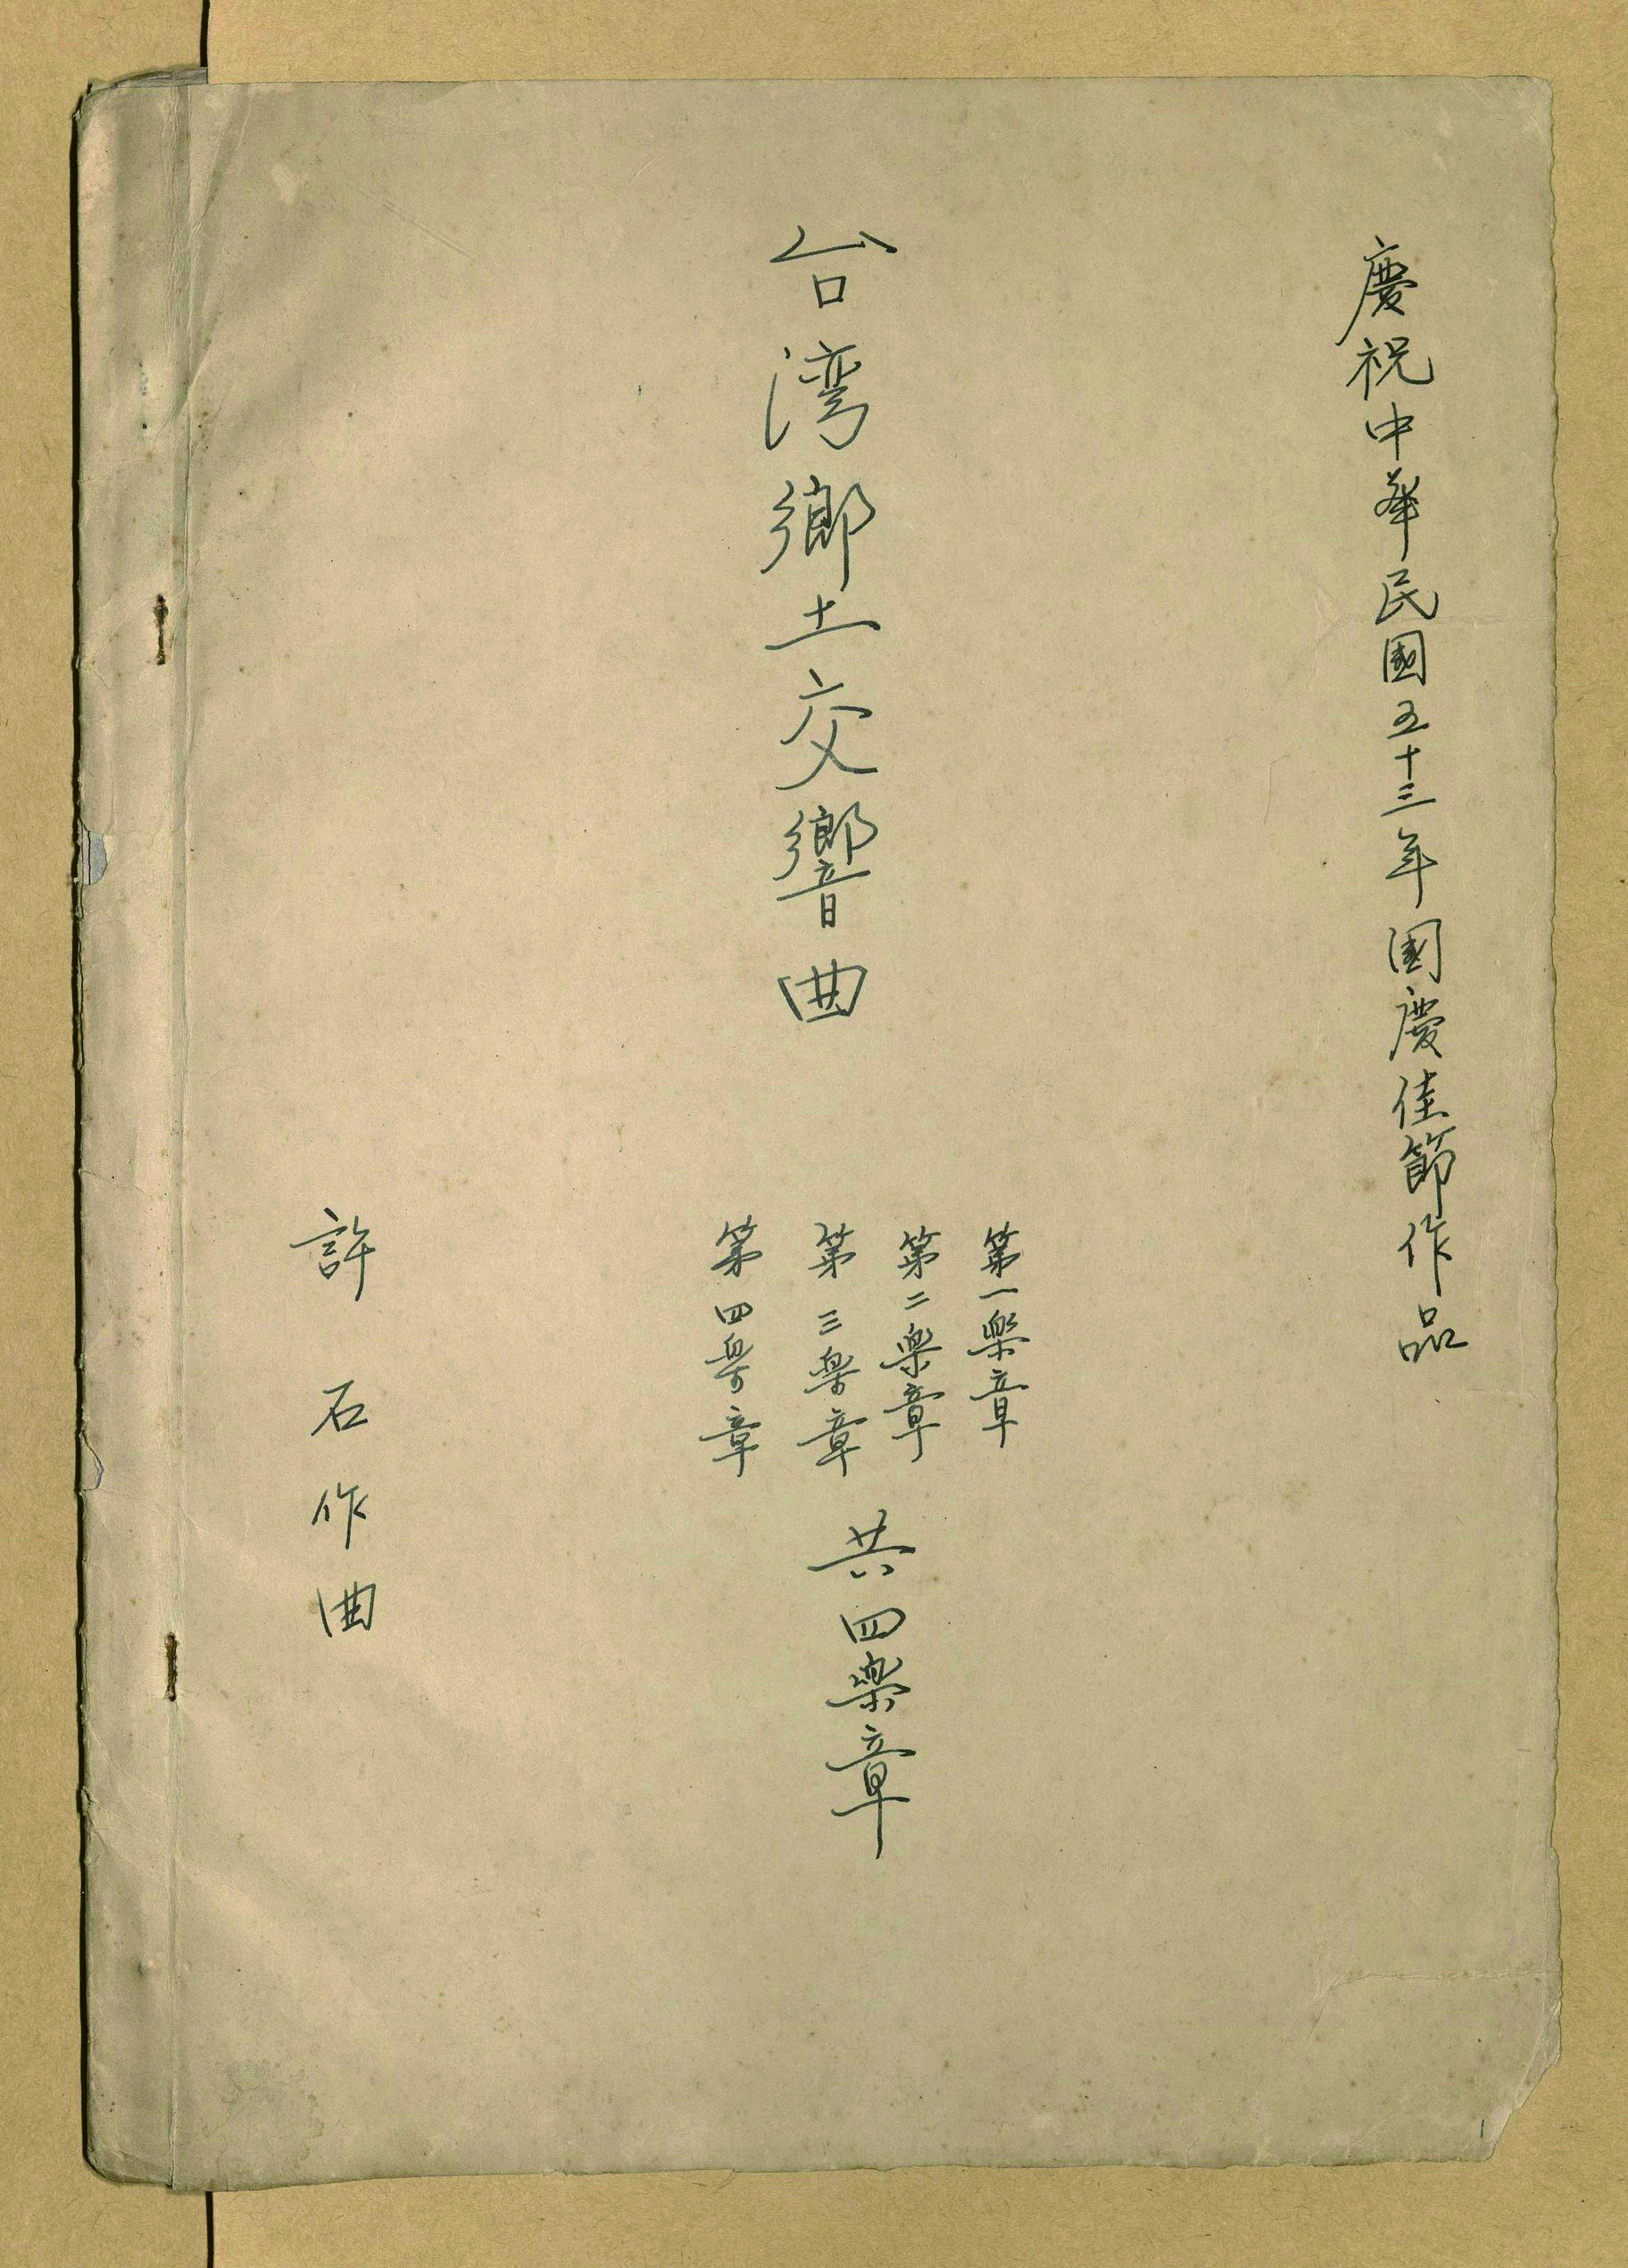 慶祝中華民國五十三年國慶佳節作品
台湾鄉土交響曲
第一樂章
第二樂章
第三樂章
第四樂章
共四樂章
許石作曲
1